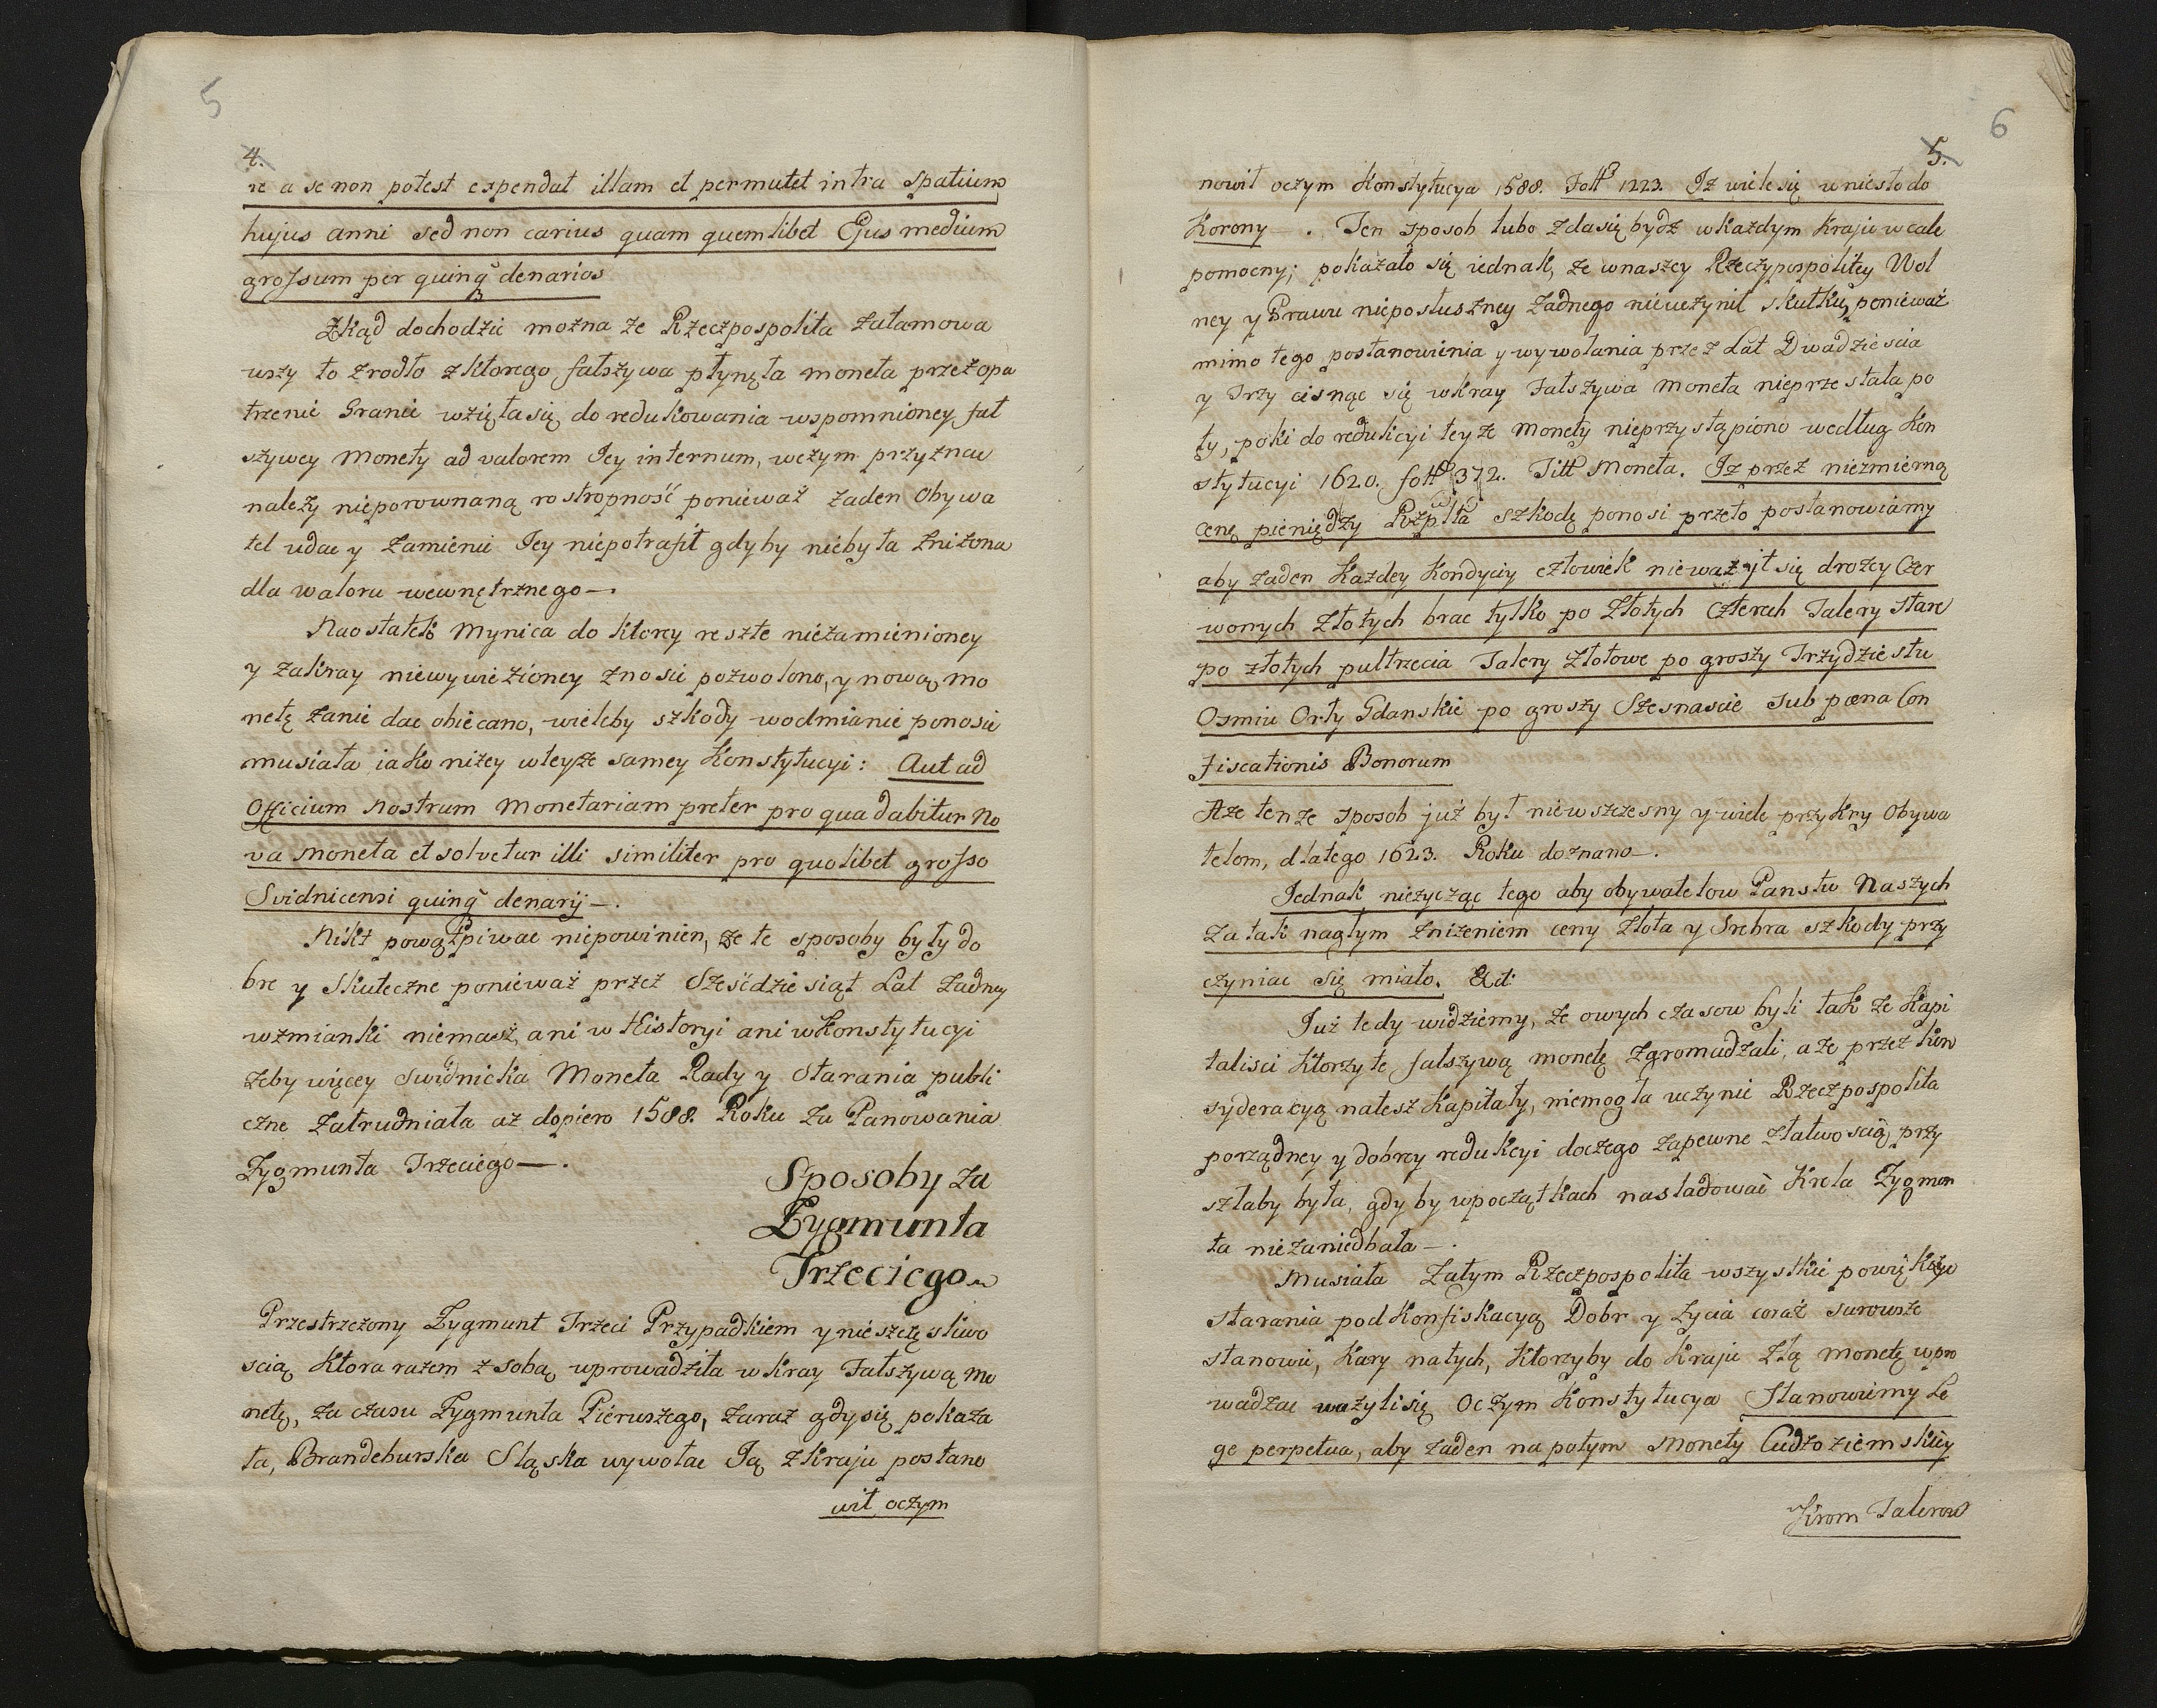 5
4.
re a se non potest expendat illam et permutet intra Spatium
hujus anni sed non carius quam quemlibet Ejus medium
grossum per quinq denarios
Zkąd dochodzić można że Rzeczpospolita zatamowa
wszy to zrodło z ktorego fałszywa płynęła moneta przez opa
trzenie Granic wzięła się do redukowania wspomnioney fał
szywey Monety ad valorem Jey internum, wczym przyznac
należy nieporownaną rostropność ponieważ żaden Obywa
tel udac y zamienić Jey niepotrafił gdyby niebyła zniżona
dla waloru wewnętrznego—.
Naostatek Mynica do ktorey reszte niezamienioney
y zakray niewywiezioney znosić pozwolono, y nową mo
netę zanie dac obiecano, wieleby szkody wodmianie ponosić
musiała iako niżey wteyże samey Konstytucyi: Aut ad
Officium Nostrum Monetariam preter pro qua dabitur No
va Moneta et solvetur illi similiter pro quolibet grosso
Svidnicensi quinq denarij—.
Nikt powątpiwac niepowinien, że te sposoby były do
bre y skuteczne ponieważ przez Sześćdziesiąt Lat żadney
wzmianki niemasz, ani w Historyi ani w Konstytucyi
żeby więcey swidnicka Moneta Rady y Starania publi
czne zatrudniała aż dopiero 1588. Roku za Panowania
Zygmunta Trzeciego—.
Sposoby za
Zygmunta
Trzeciego
Przestrzeżony Zygmunt Trzeci Przypadkiem y nieszczęsliwo
scią Ktora razem z sobą wprowadziła w kray Fałszywą Mo
netę, za czasu Zygmunta Pierwszego, zaraz gdy się pokaza
ła, Brandeburska Sląska wywołac Ją z kraju postano
wił oczym
6
5.
nowił oczym Konstytucya 1588. Foll 1223. Iż wiele się wniesło do
Korony—. Ten sposob lubo zda się bydz w każdym Kraju wcale
pomocny; pokazało się iednak, że wnaszey Rzeczypospolitey Wol
ney y Prawu nieposłuszney żadnego nieuczynił skutku, ponieważ
mimo tego postanowienia y wywołania przez Lat Dwadzieścia
y Trzy cisnąc się wkray Fałszywa Moneta nieprzestała po
ty, poki do redukcyi teyże Monety nieprzystąpiono według Kon
stytucyi 1620. foll 372. Titt Moneta. Iż przez niezmierną
cenę pieniędzy Rzplta szkodę ponosi przeto postanowiamy
aby żaden Każdey Kondyciy człowiek nieważył się drożey Czer
wonych Złotych brac tylko po Złotych Czterech Talery stare
po złotych pułtrzecia Talery Złotowe po groszy Trzydziestu
Osmiu Orty Gdanskie po groszy Szesnascie sub pœna Con
fiscationis Bonorum
Aże tenże sposob już był niewszczesny y wiele przykry Obywa
telom, dlatego 1623. Roku doznano—.
Jednak nieżycząc tego aby obywatelow Panstw Naszych
Za tak nagłym zniżeniem ceny Złota y Srebra szkody przy
czyniac się miało. &ct:
Już tedy widziemy, że owych czasow byli także Kapi
talisci Ktorzy te fałszywą monetę zgromadzali, a że przez kon
syderacyą natesz Kapitały, niemogła uczynić Rzeczpospolita
porządney y dobrey redukcyi doczego zapewne złatwością przy
szłaby była, gdyby wpoczątkach nasladować Krola Zygmon
ta niezaniedbała—.
Musiała Zatym Rzeczpospolita wszystkie powiększyc
starania pod Konfiskacyą Dobr y Zycia coraż surowsze
stanowić, Kary natych, Ktorzyby do Kraju złą monetę wpro
wadzac ważyli się Oczym Konstytucya Stanowiemy Le
ge perpetua, aby żaden napotym Monety Cudzoziemskiey
Talerow